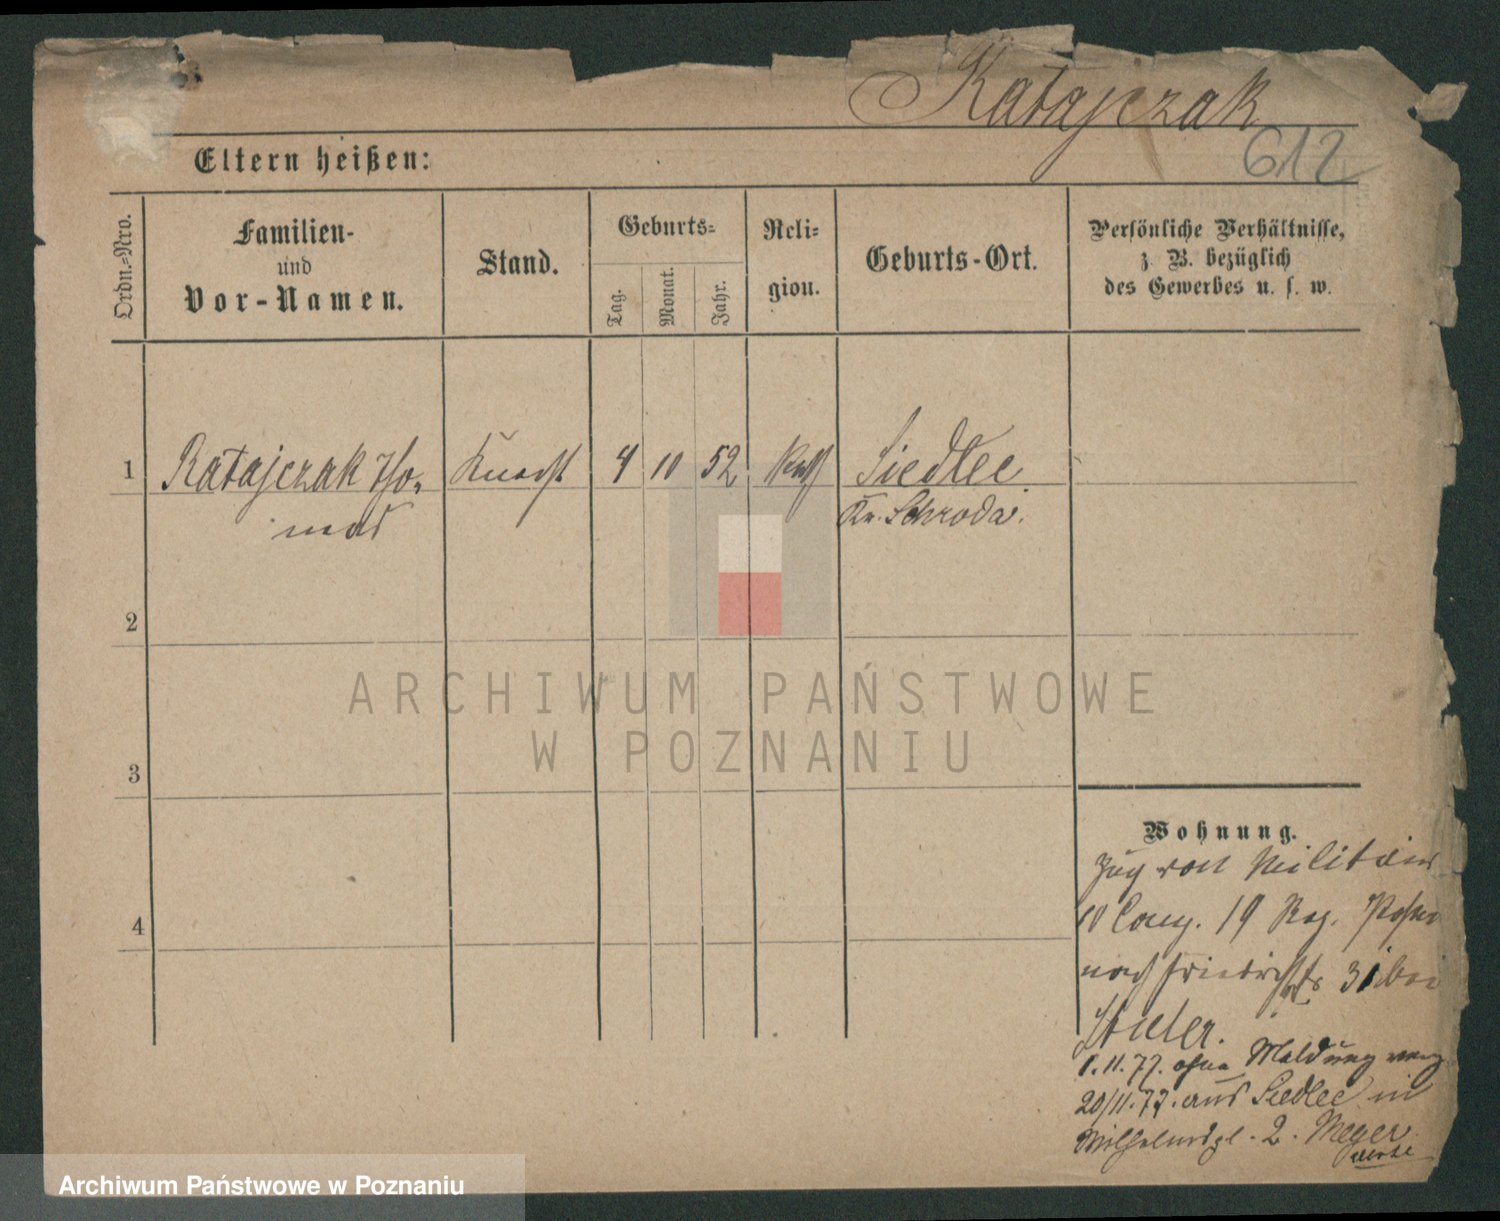 Ratajczak
612
Eltern heißen:
Ordn.-Nro.
Familien-
und
Vor-Namen.
Stand.
Geburts-
Tag.
Monat.
Jahr.
Reli-
gion.
Geburts-Ort.
Persönliche Verhältnisse,
z. B. bezüglich
des Gewerbes u. s. w.
1
Ratajczak Tho-
mas
Knecht
4
10
52
kath
Siedlec
Kr. Schroda.
2
3
4
Wohnung.
Zug von Militair
10 Comp. 19 Reg. Posen
nach Friedrichstr 31 bei
Stiller.
1.11.77. ohne Meldung weg
20/11.77. aus Siedlec in
Wilhelmspl. 2. Meyer
ARCHIWUM PAŃSTWOWE
W POZNANIU
Archiwum Państwowe w Poznaniu